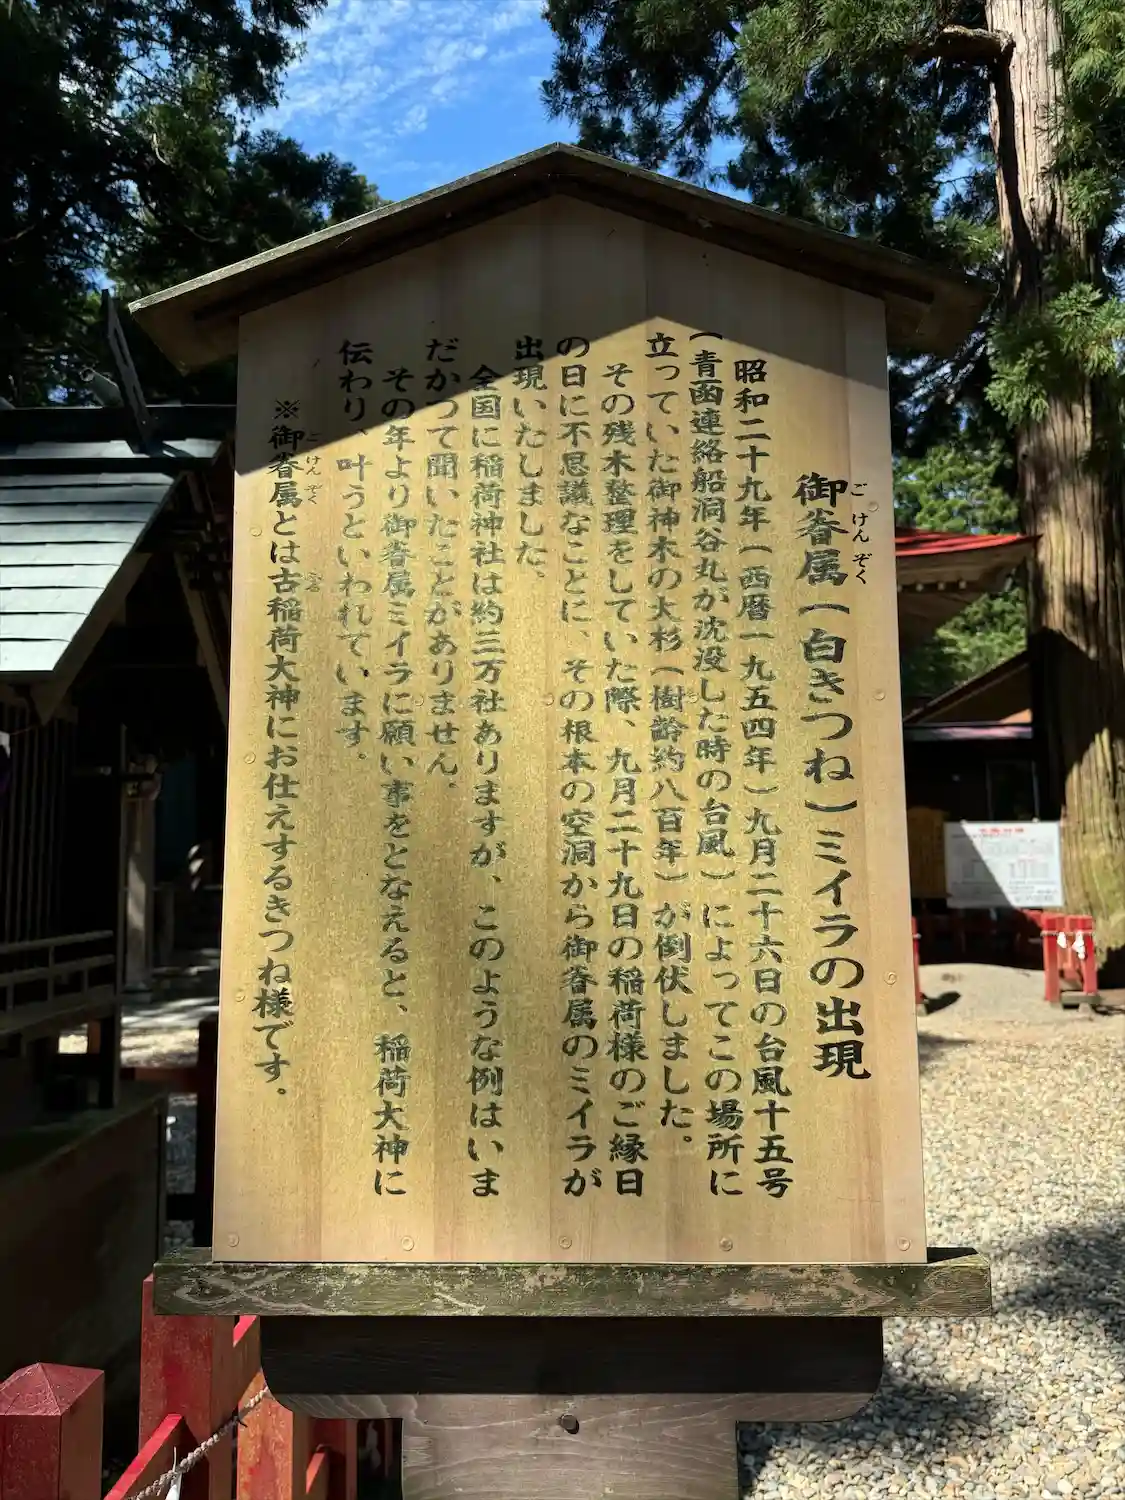 御眷属（白きつね）ミイラの出現
ごけんぞく
昭和二十九年（西暦一九五四年）九月二十六日の台風十五号
（青函連絡船洞谷丸が沈没した時の台風）によってこの場所に
立っていた御神木の大杉（樹齢約八百年）が倒伏しました。
その残木整理をしていた際、九月二十九日の稲荷様のご縁日
の日に不思議なことに、その根本の空洞から御眷属のミイラが
出現いたしました、
全国に稲荷神社は約三万社ありますが、このような例はいま
だかつて聞いたことがありません。
その年より御眷属ミイラに願い事をとなえると、稲荷大神に
伝わり、叶うといわれています。
※御眷属とは古稲荷大神にお仕えするきつね様です。
ごけんぞく